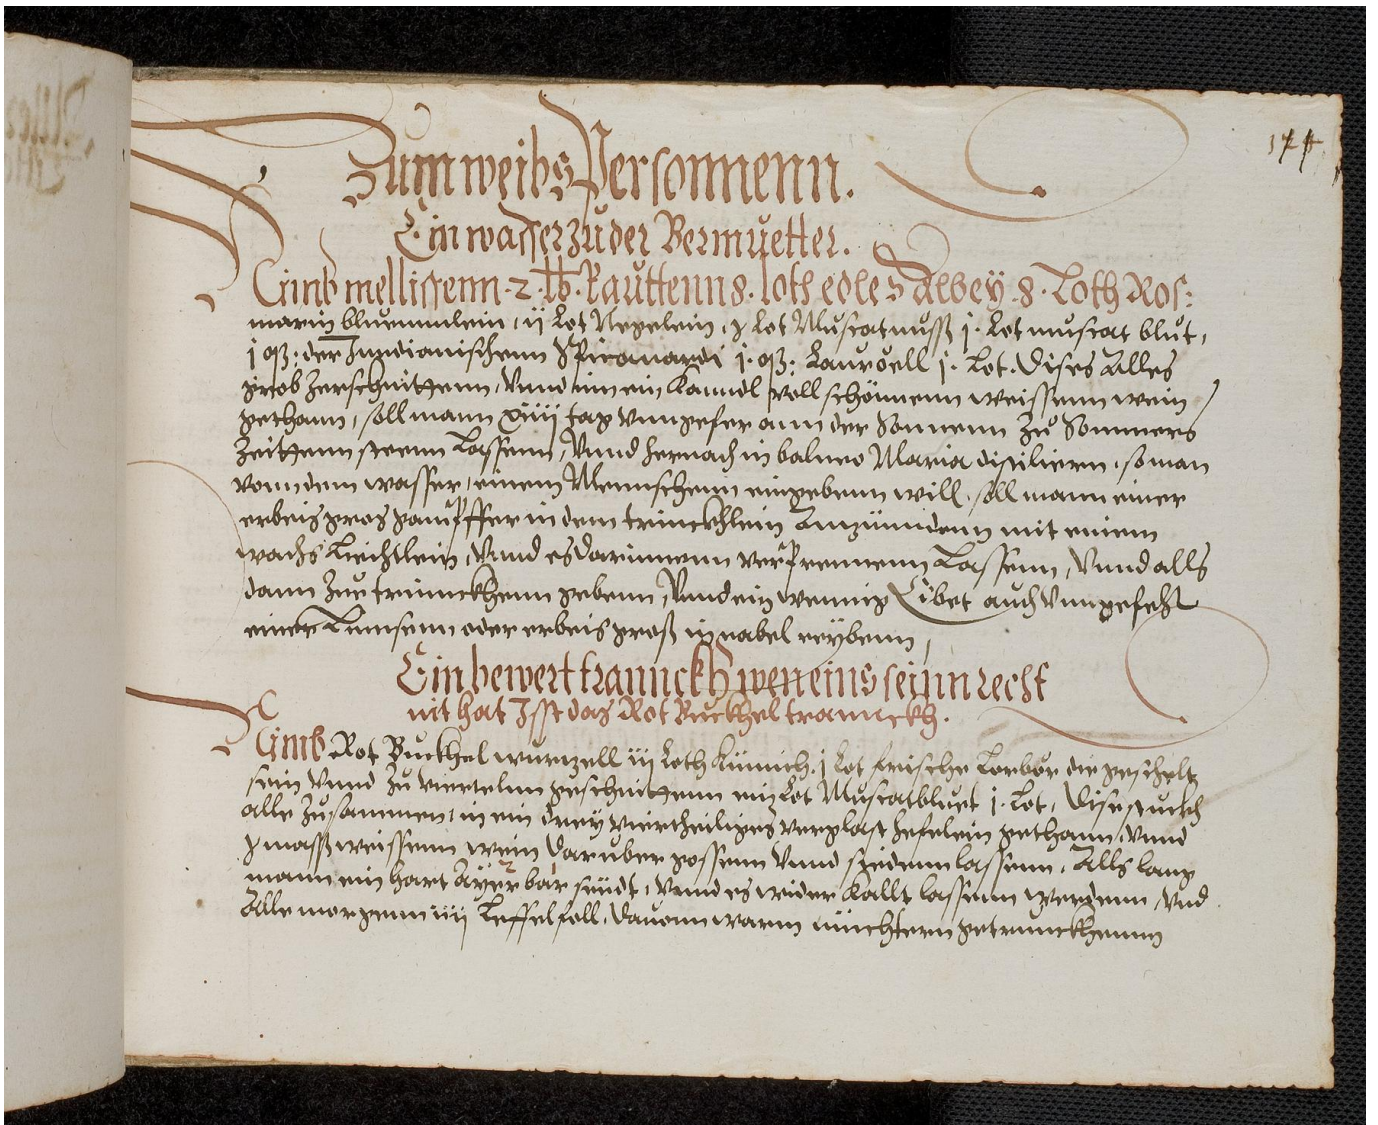 174
Zum weibs Personnenn.
Ein wasser zu der Bermuetter.
Nimb mellissenn .2. lb. Rauttenn 8. loth edle Salbey .8. Loth Ros:
marin bluemmlein, ij Lot Negelein, j Lot Muscatnuss j. Lot muscat blut,
j q3: der Inndianischenn Spicanardi j. q3: Lauroell j. Lot. Dises Alles
grob Zerschnittenn, Vnnd inn ein Kanndl voll schönnenn weissenn wein
gethann, soll mann xiiij tag vnngefer ann der Sonnenn Zu Sommers
Zeittenn steenn Lassenn, Vnnd hernach in balneo Maria distiliern, so man
vonn dem wasser, einem Mennschenn eingebenn will, soll mann einer
erbeis gros gampffer in dem trinckhlein Anzünndenn mit einem
wachs Liechtlein, Vnnd es darinnenn verPrennenn Lassenn, Vnnd alls
dann Zue trinnckhenn gebenn, Vnnd ein wennig Cibet auch Vnngefehr
einer Linnsenn oder erbeis groß in nabel reybenn,
Ein bewert trannckh wen eins sein recht
nit hat Isst das Rot Buckhel trannckh.
Nimb Rot Buckhel wurnzell iij Loth Kümich j Lot frische Lorbör die geschelt
sein Vnnd Zu viertelnn geschnittenn ein Lot Muscatbluet j. Lot, Dise stuckh
alle Zusammen, in ein drey viertheiliges verglast hefelein gethann, Vnnd
j mass weissenn wein darüber gossenn Vnnd siedenn lassenn, Alls lang
mann ein hart Ayer bar seudt, Vnnd es wider Kallt lassenn werdenn, Vnd
Alle morgenn iiij Leffel foll, dauonn warm nüchtern getrunckhenn